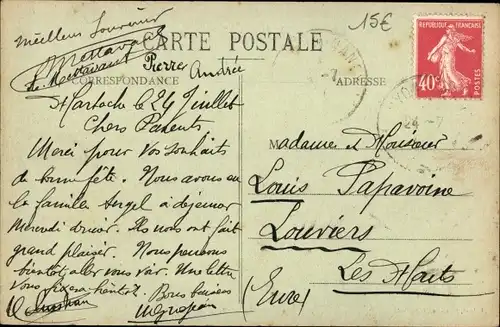 Meilleur Souvenir
15€
CARTE POSTALE
Pierre Andrée
CORRESPONDANCE
ADRESSE
REPUBLIQUE FRANÇAISE
40c
POSTES
24-7
le 24 Juillet
Chers Parents
Merci pour vos souhaits
de bonne fête. Nous avons eu
la famille Angel à déjeuner
Mercredi dernier. Ils nous ont fait
grand plaisir. Nous pensons
bientôt aller vous voir. Une lettre
vous fixera bientôt.
Bons baisers
Madame et Monsieur
Louis Papavoine
Louviers
Les Hauts
(Eure)